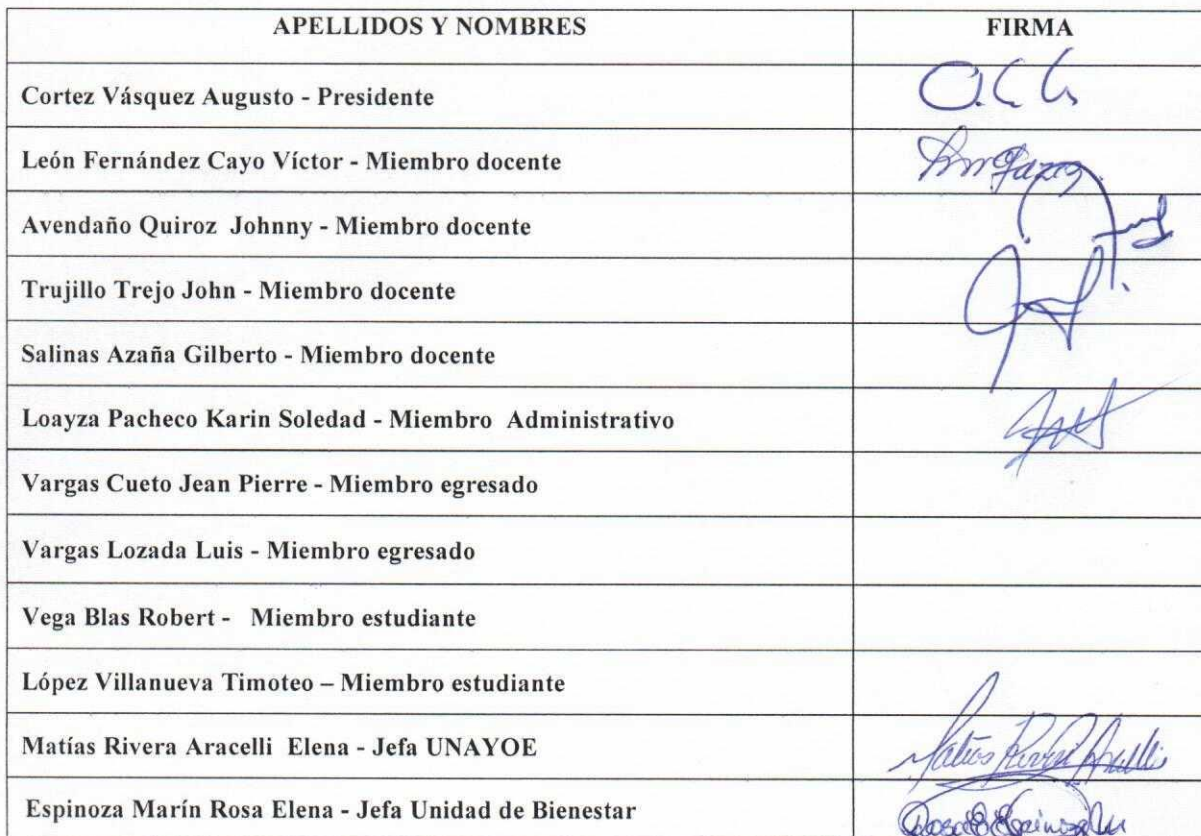 APELLIDOS Y NOMBRES FIRMA
Cortez Vásquez Augusto - Presidente
León Fernández Cayo Víctor - Miembro docente
Avendaño Quiroz Johnny - Miembro docente
Trujillo Trejo John - Miembro docente
Salinas Azaña Gilberto - Miembro docente
Loayza Pacheco Karin Soledad - Miembro Administrativo
Vargas Cueto Jean Pierre - Miembro egresado
Vargas Lozada Luis - Miembro egresado
Vega Blas Robert - Miembro estudiante
López Villanueva Timoteo – Miembro estudiante
Matías Rivera Aracelli Elena - Jefa UNAYOE Matías Rivera Aracelli
Espinoza Marín Rosa Elena - Jefa Unidad de Bienestar Rosa E Espinoza M